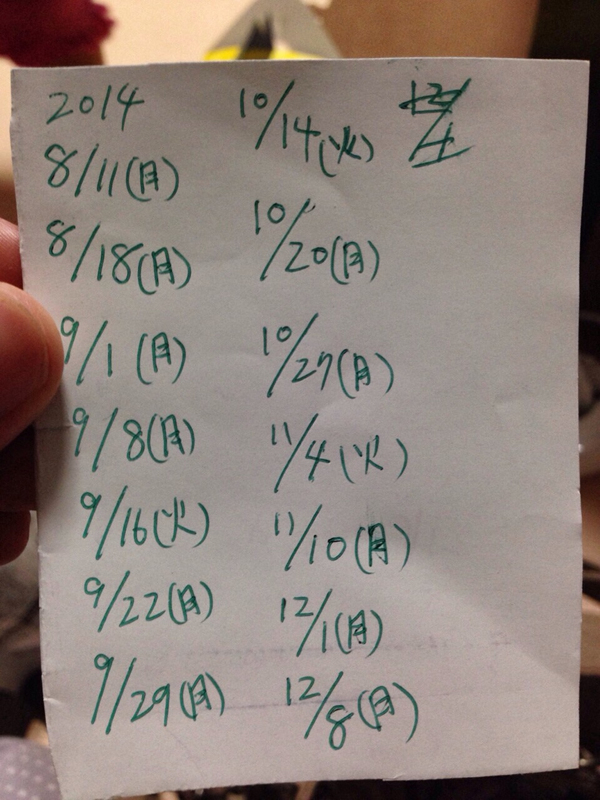 2014
8/11(月)
8/18(月)
9/1(月)
9/8(月)
9/16(火)
9/22(月)
9/29(月)
10/14(火)
10/20(月)
10/27(月)
11/4(火)
11/10(月)
12/1(月)
12/8(月)